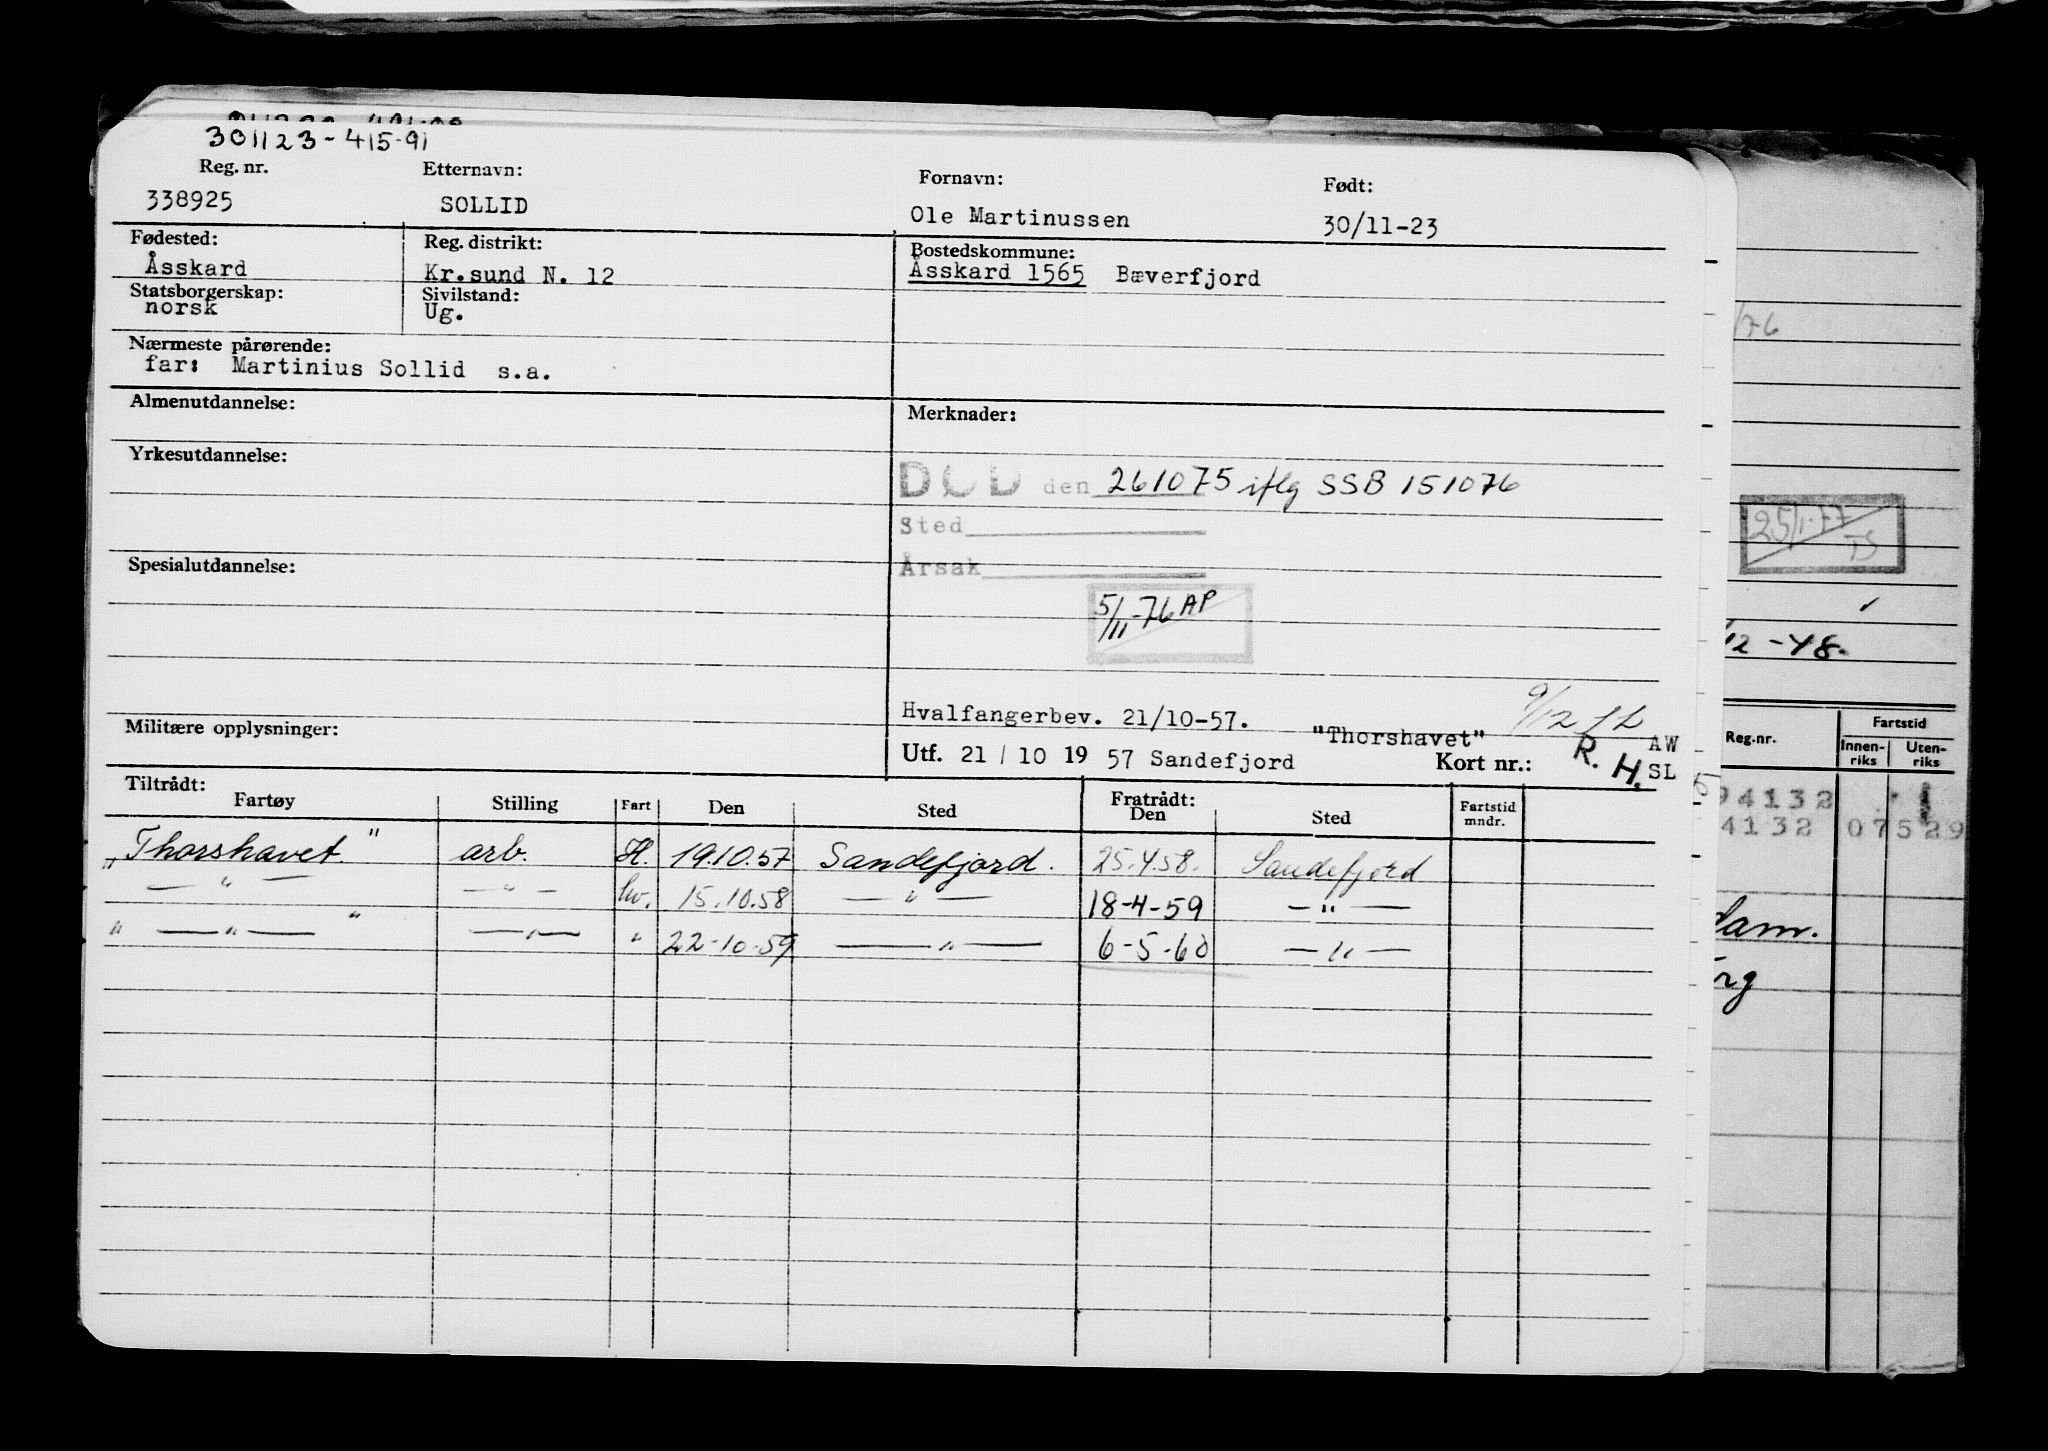 301123-415-91
Reg. nr. Etternavn: Fornavn: Født:
338925 SOLLID Ole Martinussen 30/11-23
Fødested: Reg. distrikt: Bostedskommune:
Åsskard Kr.sund N. 12 Åsskard 1565 Bæverfjord
Statsborgerskap: Sivilstand:
norsk Ug.
Nærmeste pårørende:
far: Martinius Sollid s.a.
Almenutdannelse: Merknader:
Yrkesutdannelse:
DØD den 261075 iflg SSB 151076
Sted
Spesialutdannelse: Årsak
5/11-76 AP
Hvalfangerbev. 21/10-57. "Thorshavet" 9/12
Militære opplysninger: Utf. 21 / 10 19 57 Sandefjord Kort nr.: R. H. AW
SL
Tiltrådt: Fratrådt:
Fartøy Stilling Fart Den Sted Den Sted Fartstid mndr.
„Thorshavet" arb. H. 19.10.57 Sandefjord. 25.4.58. Sandefjord
— " — — " — hv. 15.10.58 — " — 18-4-59 — " —
" — " — " — " — " 22-10-59 — " — 6-5-60 — " —
/76
25/1-77
TS
/12-48.
Reg.nr. Fartstid
Innen-riks Uten-riks
94132
4132 07529
dam.
org